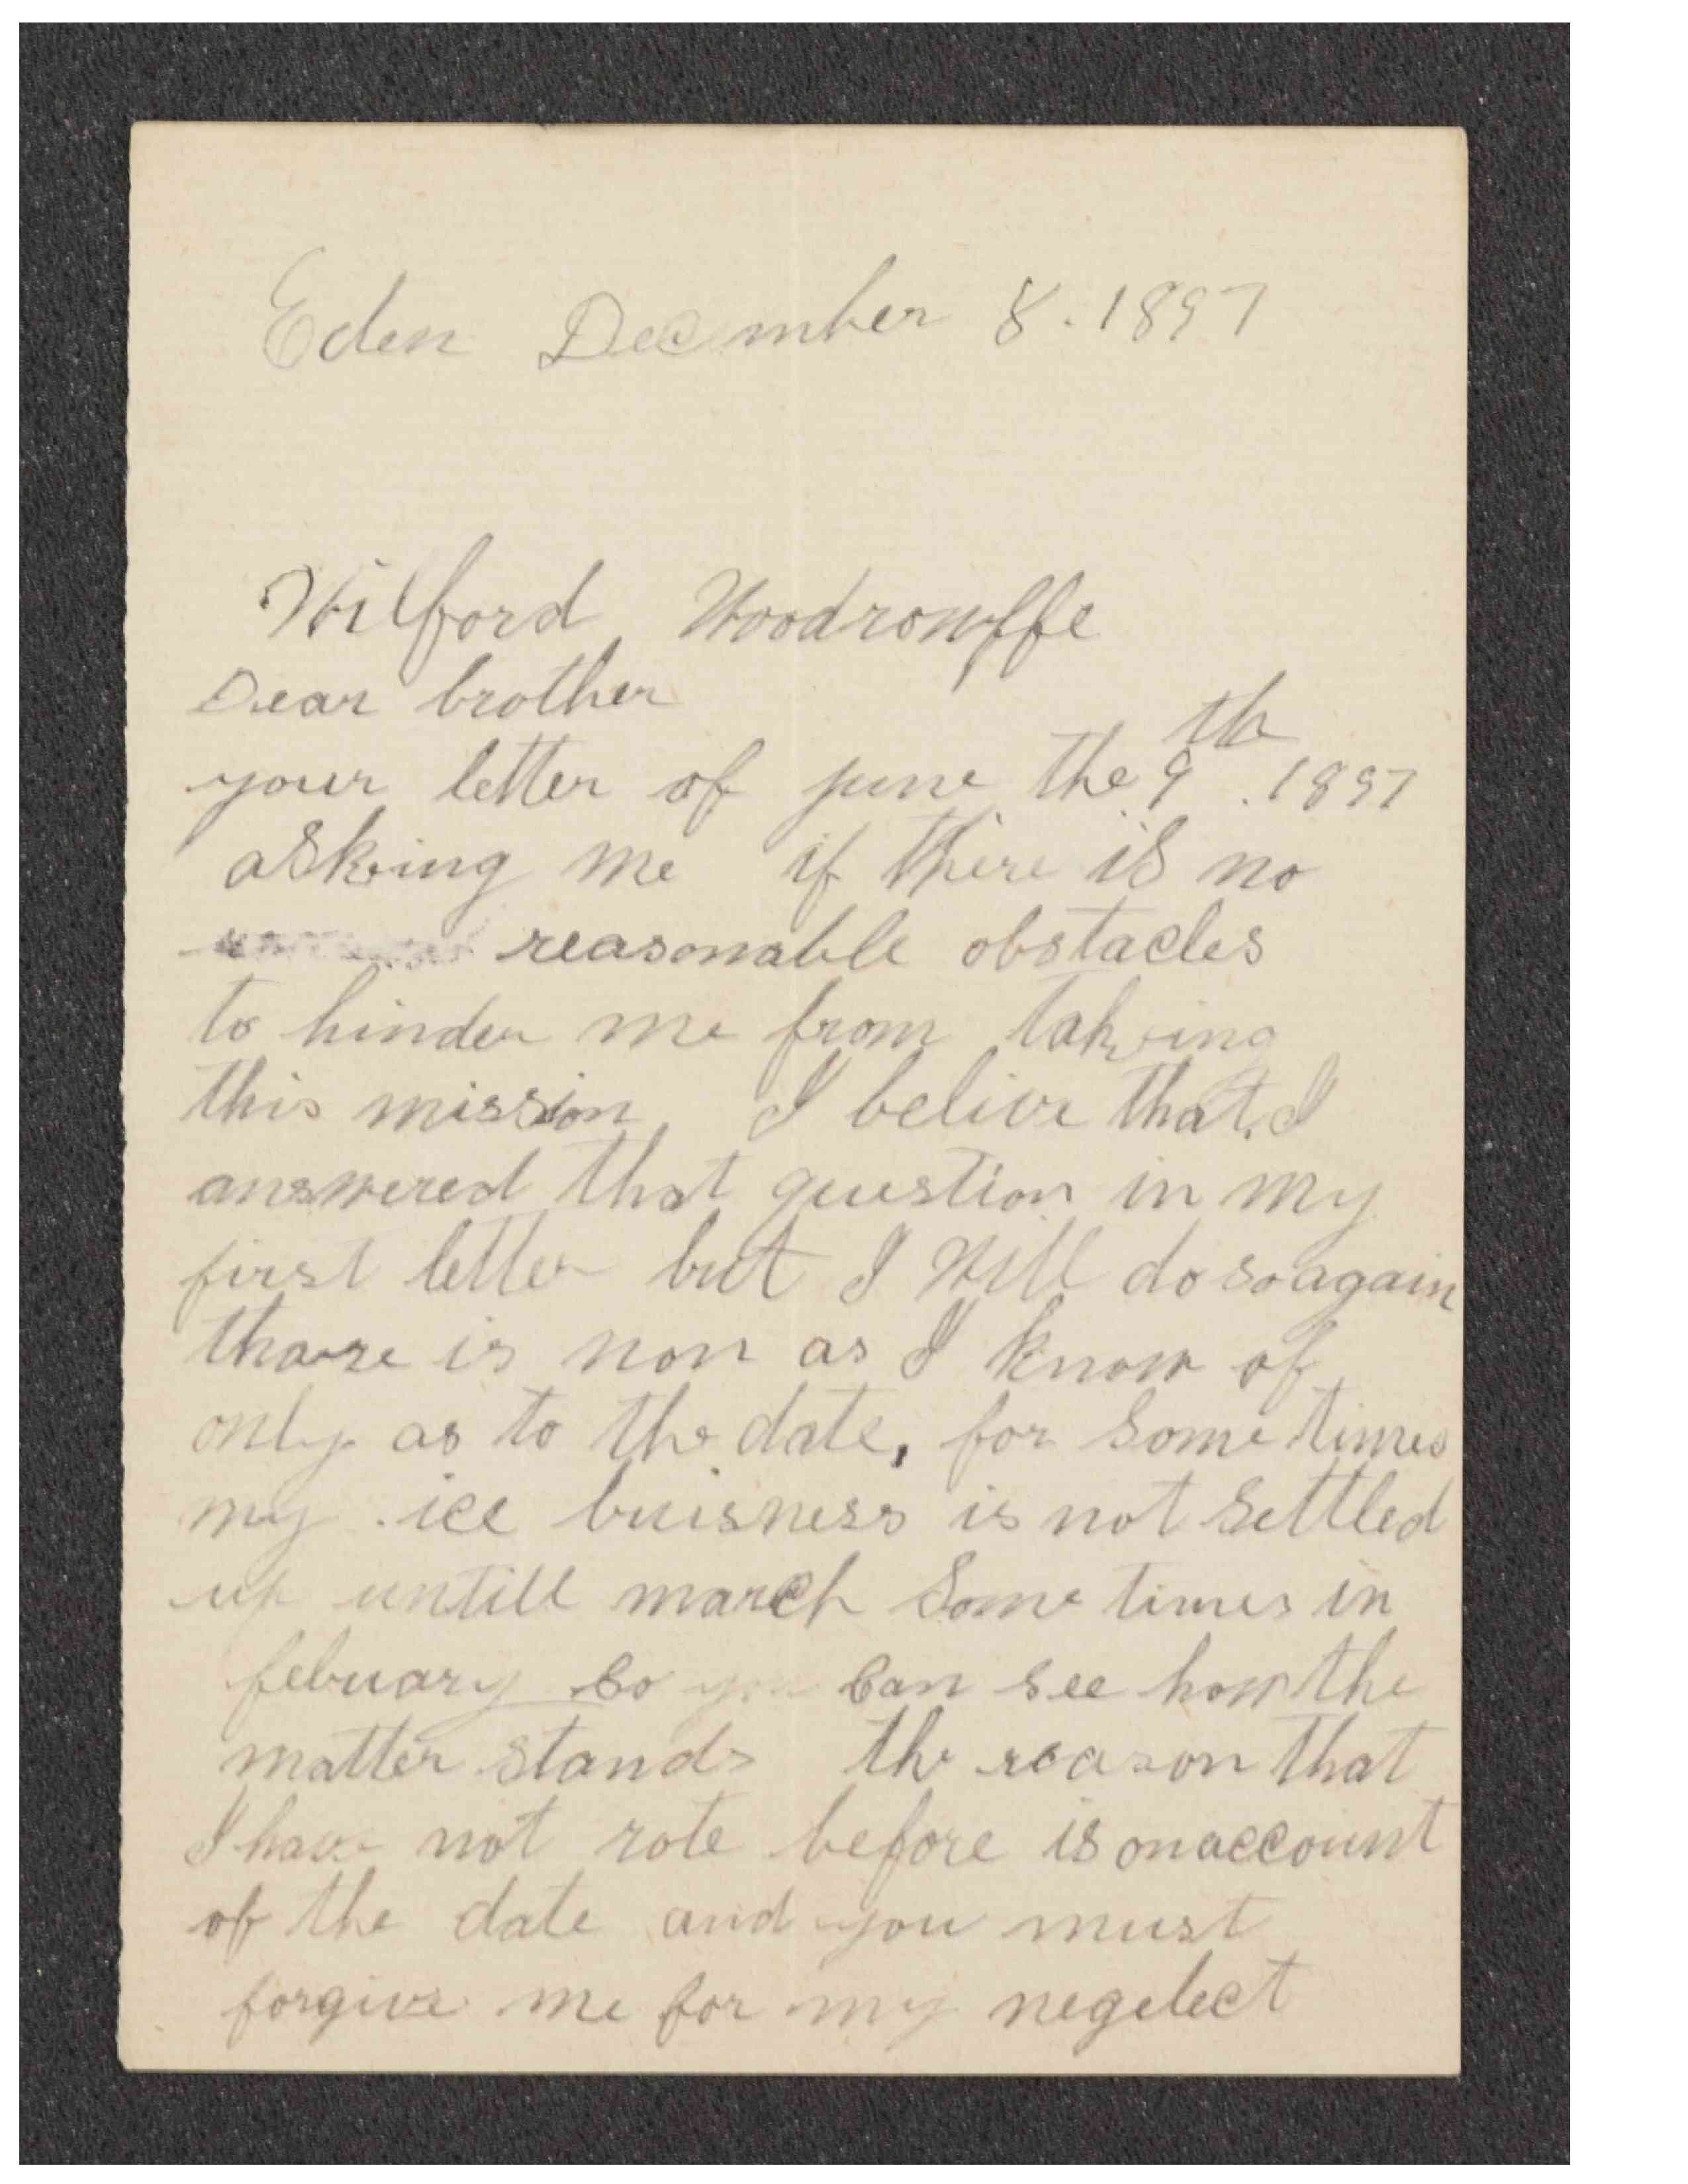 Eden December 8. 1897
Wilford Woodrowffe
Dear brother
your letter of june the 9th. 1897
askeing me if there is no
reasonable obstacles
to hinder me from takeing
this mission I belive that I
answered that question in my
first letter but I Will do so again
thare is non as I know of
only as to the date, for some times
my ice buisness is not settled
up untill march some times in
febuary so you can see how the
matter stands the reason that
I have not rote before is on account
of the date and you must
forgive me for my negelect